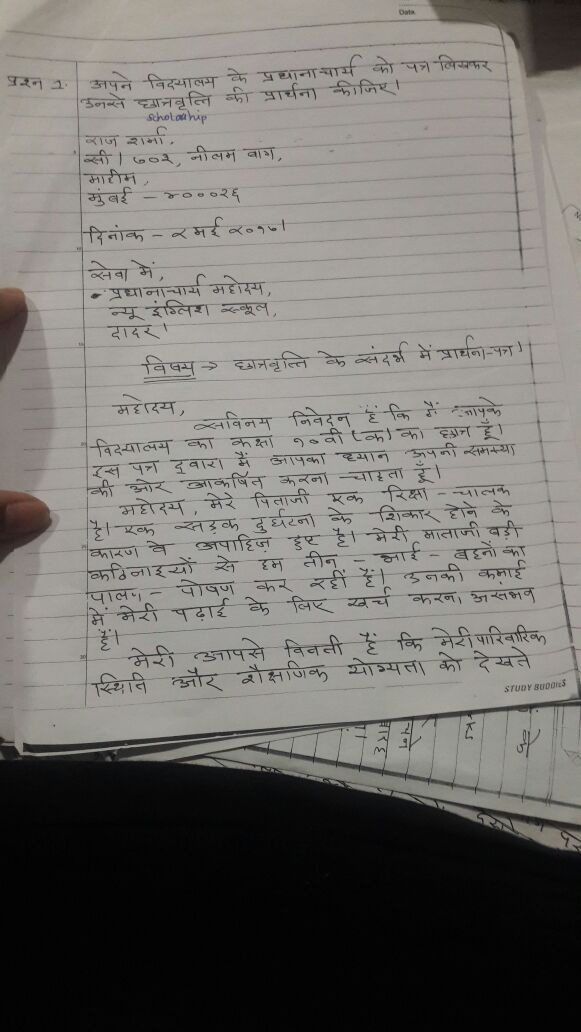 Data
प्रश्न 1. अपने विद्यालय के प्रधानाचार्य को पत्र लिखकर
उनसे छात्रवृत्ति की प्रार्थना कीजिए।
scholarship
राज शर्मा,
सी। ७०२, नीलम बाग,
माहीम,
मुंबई - ४०००१६
दिनांक - २ मई २०१७।
सेवा में,
प्रधानाचार्य महोदय,
न्यू इंग्लिश स्कूल,
दादर।
विषय → छात्रवृत्ति के संदर्भ में प्रार्थना-पत्र।
महोदय,
सविनय निवेदन हैं कि मैं आपके
विद्यालय का कक्षा १०वी (क) का छात्र हूँ।
इस पत्र द्वारा मैं आपका ध्यान अपनी समस्या
की ओर आकर्षित करना चाहता हूँ।
महोदय, मेरे पिताजी एक रिक्षा - चालक
है। एक सड़क दुर्घटना के शिकार होने के
कारण वे अपाहिज हुए है। मेरी माताजी बड़ी
कठिनाइयों से हम तीन - भाई - बहनों का
पालन - पोषण कर रहीं हैं। उनकी कमाई
में मेरी पढ़ाई के लिए खर्च करना असंभव
हैं।
मेरी आपसे विनती हैं कि मेरी पारिवारिक
स्थिति और शैक्षणिक योग्यता को देखते
STUDY BUDDIES